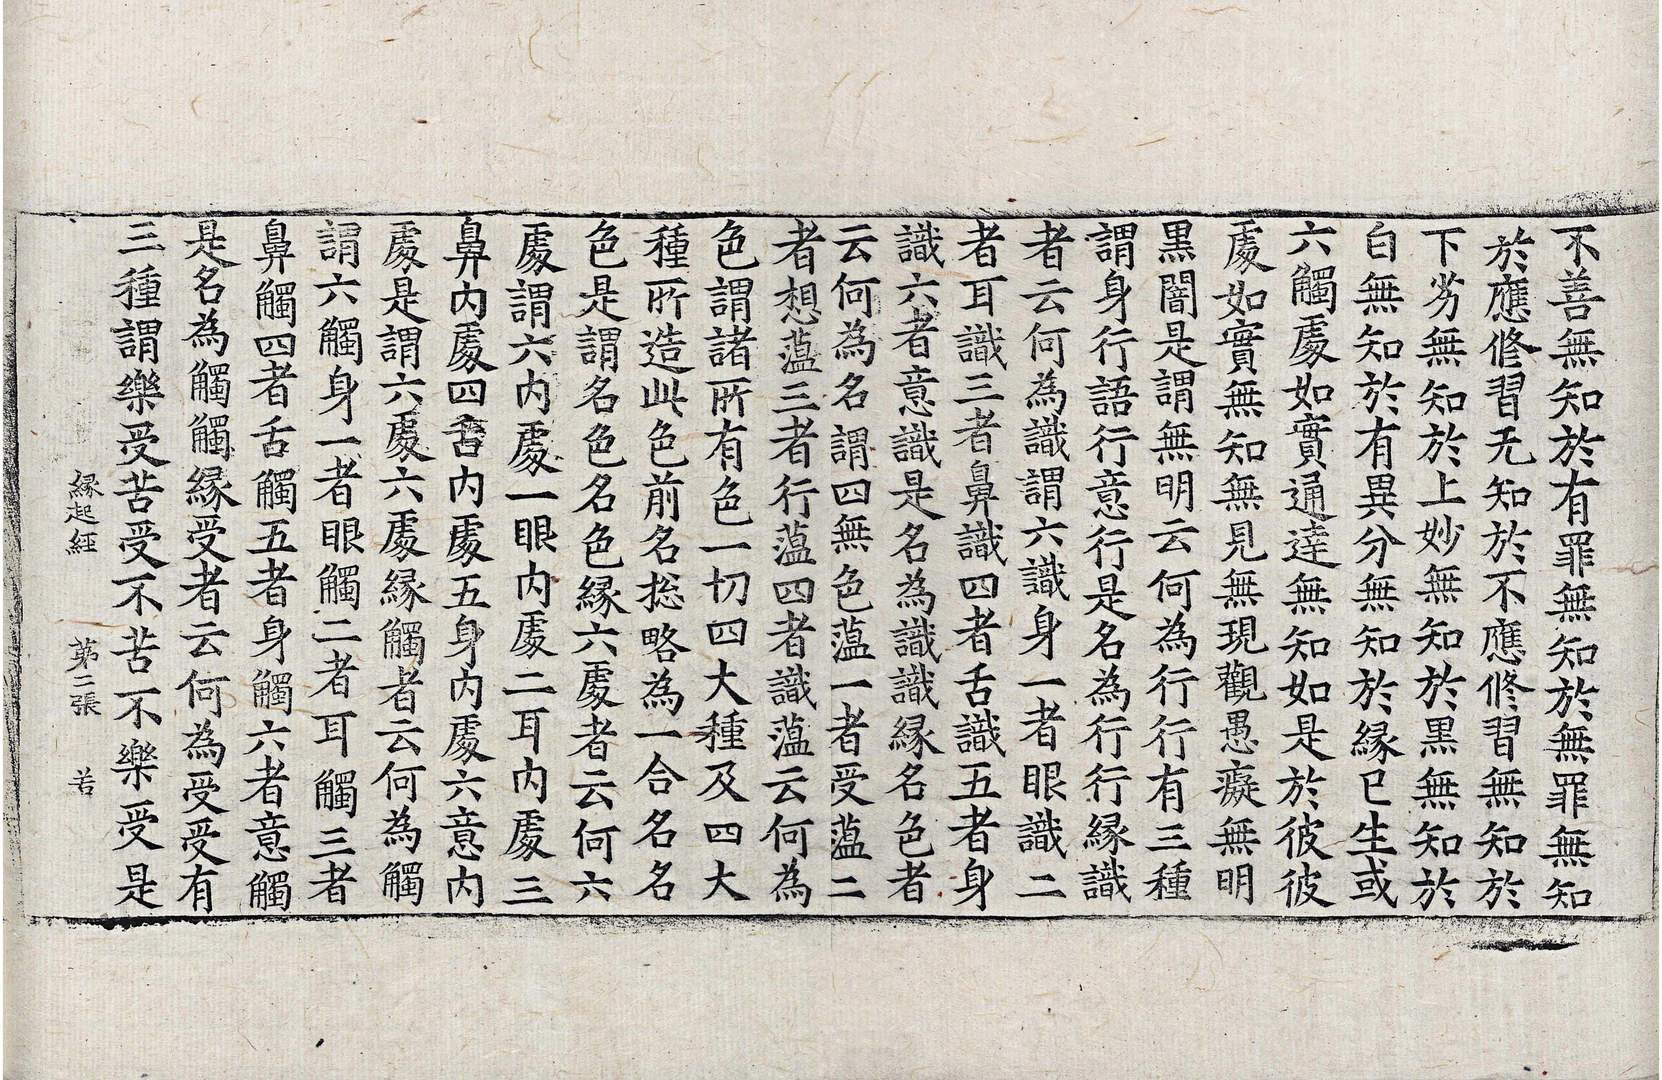 不善無知於有罪無知於無罪無知
於應修習无知於不應修習無知於
下劣無知於上妙無知於黒無知於
白無知於有異分無知於縁已生或
六觸處如實通達無知如是於彼彼
處如實無知無見無現觀愚癡無明
黒闇是謂無明云何為行行有三種
謂身行語行意行是名為行行縁識
者云何為識謂六識身一者眼識二
者耳識三者鼻識四者舌識五者身
識六者意識是名為識識縁名色者
云何為名謂四無色蕰一者受蕰二
者想蕰三者行蕰四者識蕰云何為
色謂諸所有色一切四大種及四大
種所造此色前名捴略為一合名名
色是謂名色名色縁六處者云何六
處謂六内處一眼内處二耳内處三
鼻内處四舌内處五身内處六意内
處是謂六處六處縁觸者云何為觸
謂六觸身一者眼觸二者耳觸三者
鼻觸四者舌觸五者身觸六者意觸
是名為觸觸縁受者云何為受受有
三種謂樂受苦受不苦不樂受是
縁起經 第二張 若